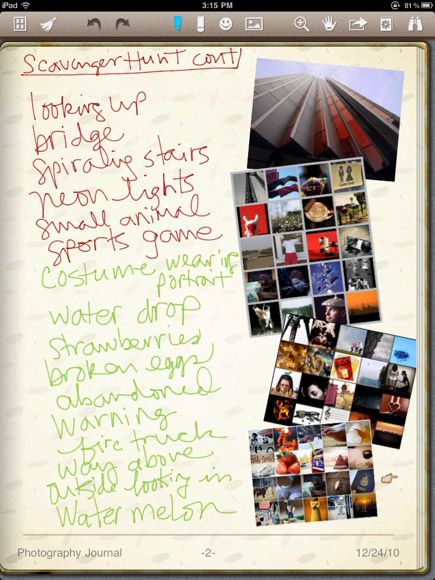 iPad 3:15 PM 81%
Scavenger Hunt cont
looking up
bridge
Spiraling stairs
neon lights
small animal
sports game
Costume wearing
portrait
water drop
strawberries
broken eggs
abandoned
warning
fire truck
way above
Outside looking in
Water melon
Photography Journal -2- 12/24/10